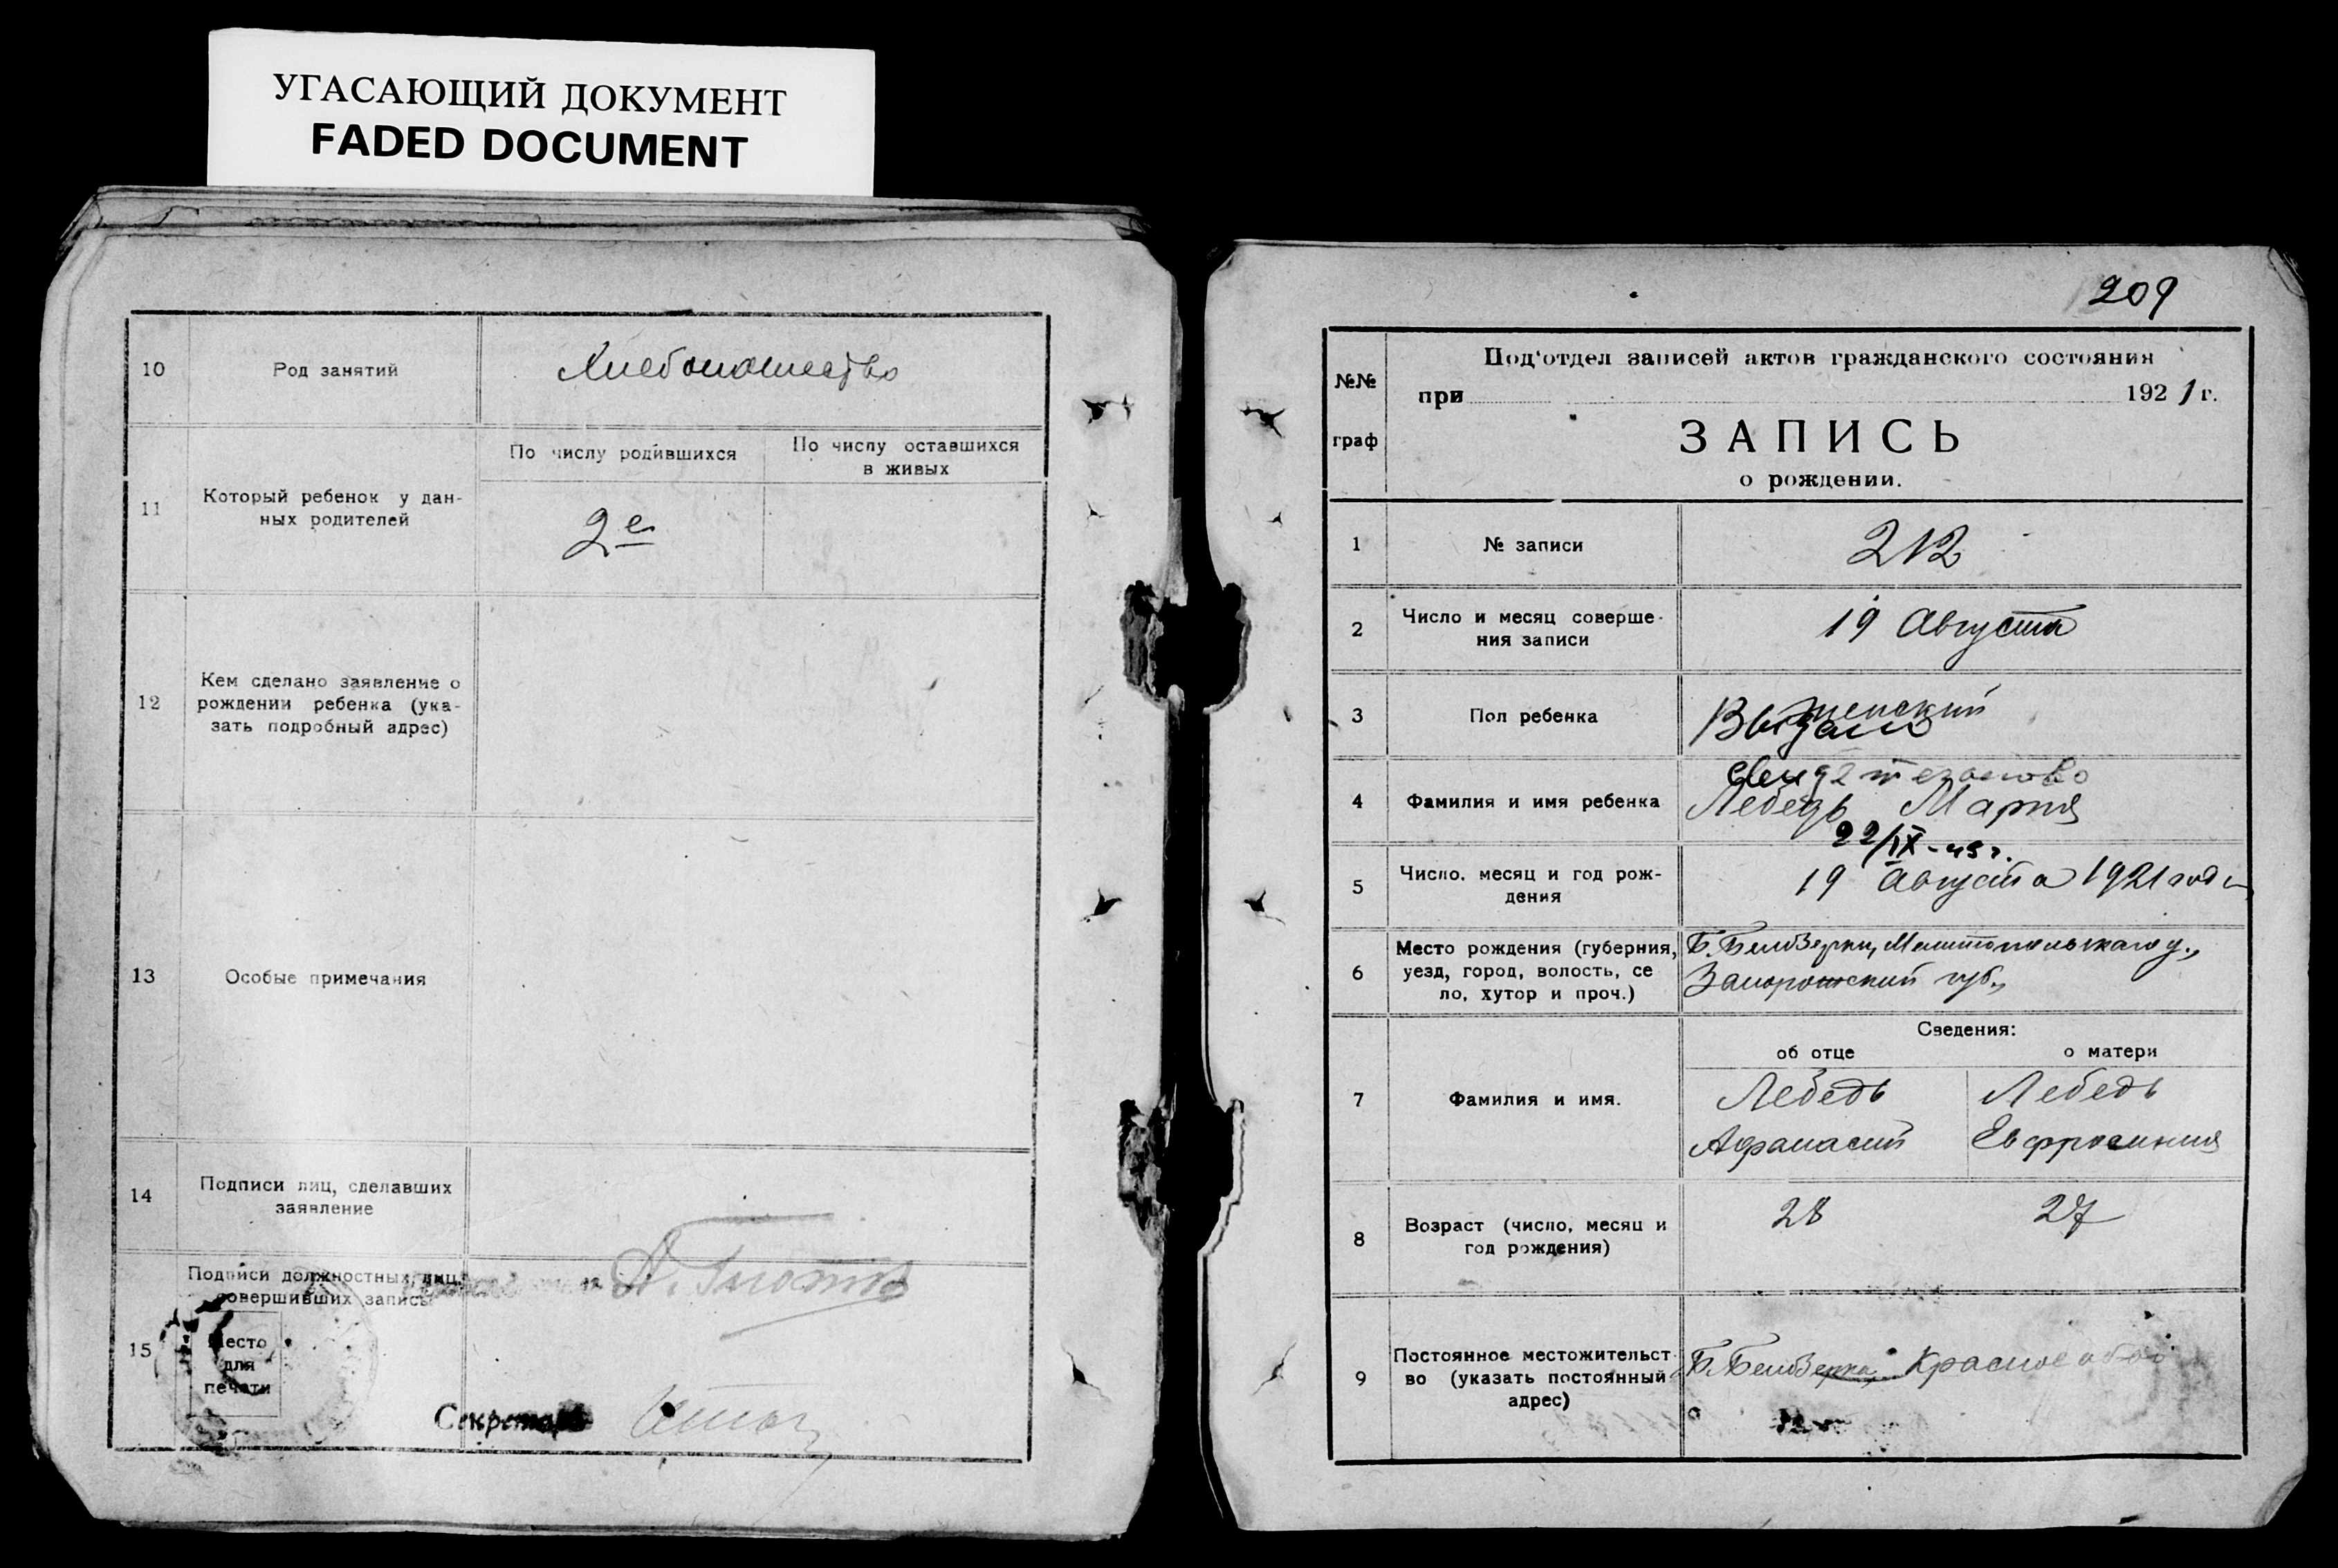 УГАСАЮЩИЙ ДОКУМЕНТ
FADED DOCUMENT
10
Род занятий
Хлебопашество
11
Который ребенок у дан-
ных родителей
По числу родившихся
По числу оставшихся
в живых
2е
12
Кем сделано заявление о
рождении ребенка (ука-
зать подробный адрес)
13
Особые примечания
14
Подписи лиц, сделавших
заявление
15
Подписи должностных лиц,
совершивших запись
Место
для
печати
Секретарь
209
№№
граф
Под'отдел записей актов гражданского состояния
при 1921 г.
ЗАПИСЬ
о рождении.
1
№ записи
212
2
Число и месяц соверше-
ния записи
19 Августа
3
Пол ребенка
женский
Выдано
свидетельство
4
Фамилия и имя ребенка
Лебедь Мария
22/IX-49 г.
5
Число, месяц и год рож-
дения
19 Августа 1921 года
6
Место рождения (губерния,
уезд, город, волость, се
ло, хутор и проч.)
Б. Белозерки, Мелитопольскаго у.,
Запорожский губ.,
Сведения:
об отце
о матери
7
Фамилия и имя.
Лебедь
Афанасий
Лебедь
Евфросиния
8
Возраст (число, месяц и
год рождения)
28
27
9
Постоянное местожительст-
во (указать постоянный
адрес)
Б. Белозерка,